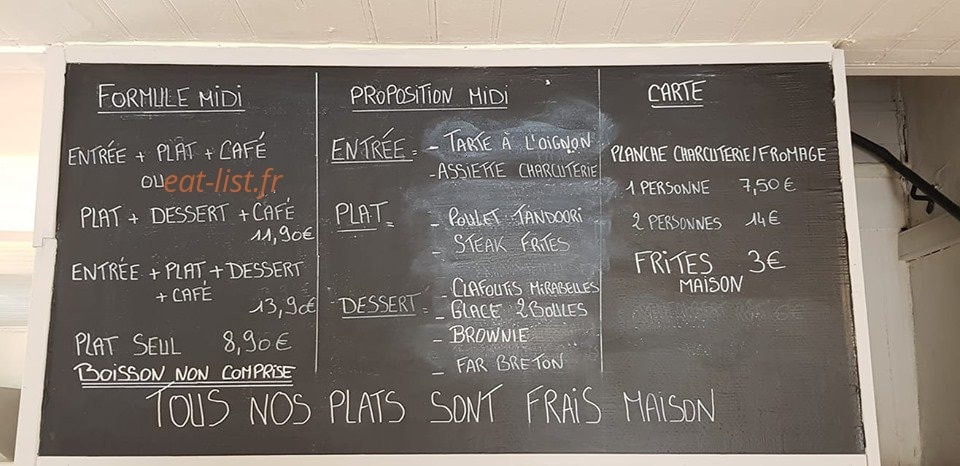 FORMULE MIDI
ENTRÉE + PLAT + CAFÉ
OU
eat-list.fr
PLAT + DESSERT + CAFÉ
11,90€
ENTRÉE + PLAT + DESSERT
+ CAFÉ
13,90€
PLAT SEUL 8,90€
BOISSON NON COMPRISE
PROPOSITION MIDI
ENTRÉE = - TARTE À L'OIGNON
- ASSIETTE CHARCUTERIE
PLAT = - POULET TANDOORI
- STEAK FRITES
- CLAFOUTIS MIRABELLES
DESSERT = - GLACE 2 BOULES
- BROWNIE
- FAR BRETON
CARTE
PLANCHE CHARCUTERIE/FROMAGE
1 PERSONNE 7,50€
2 PERSONNES 14€
FRITES 3€
MAISON
TOUS NOS PLATS SONT FRAIS MAISON